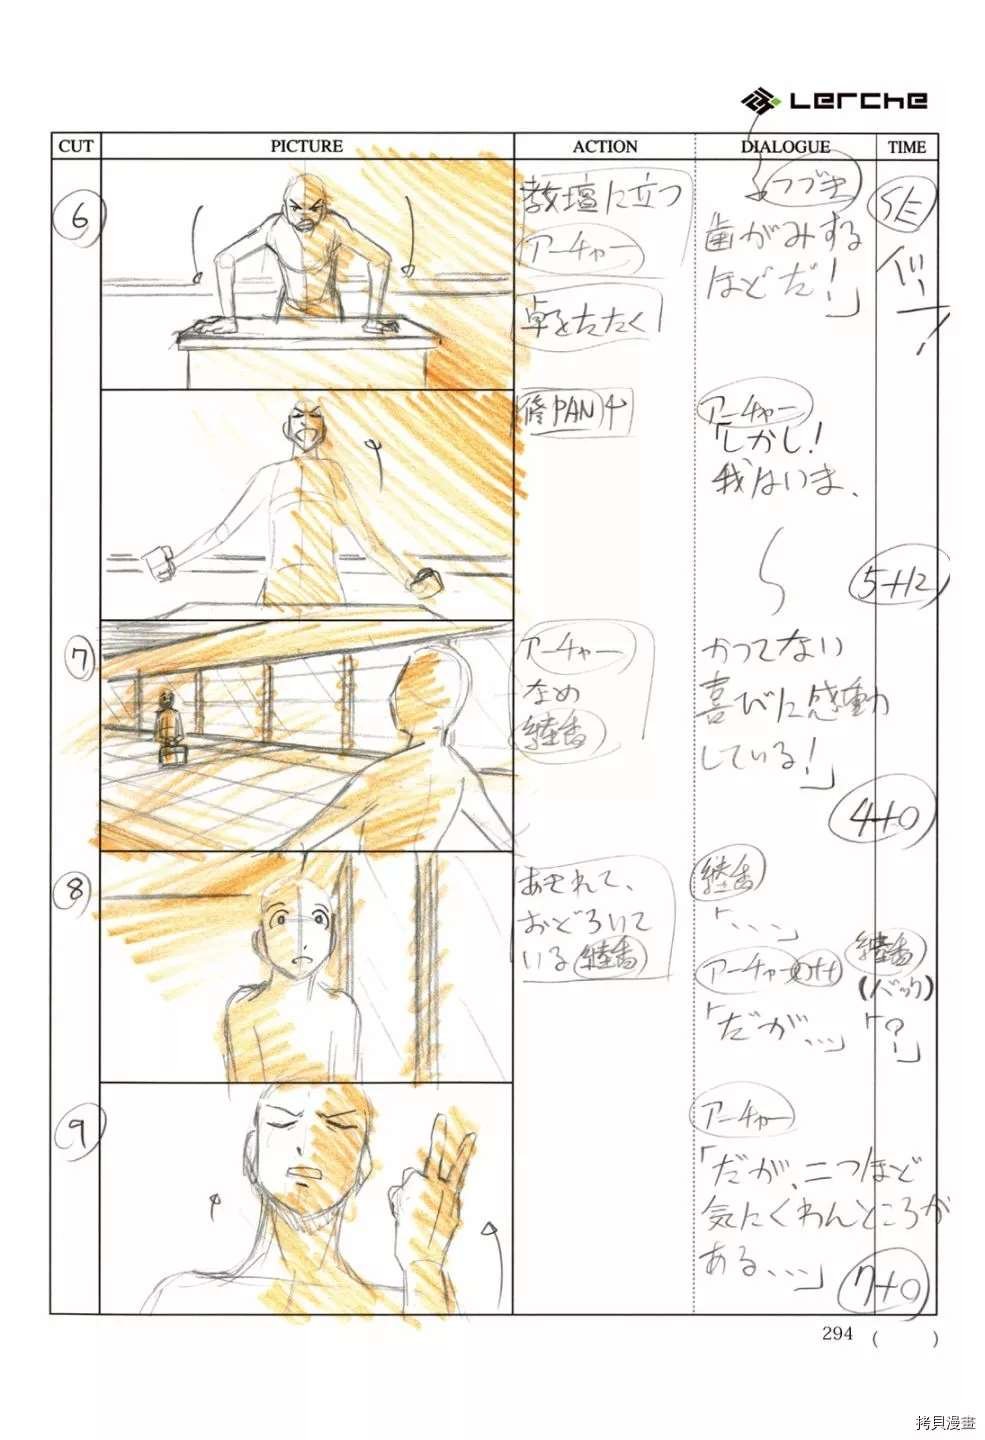 Lerche
CUT PICTURE ACTION DIALOGUE TIME
6
教壇に立つ
アーチャー
卓をたたく
つづき
歯がみする
ほどだ!」
SE
バン!
修PAN
アーチャー
「しかし!
我はいま、
5+12
7
アーチャー
なめ
継香
かつてない
喜びに感動
している!」
4+0
8
おどろいて
いる 継香
継香
「、、、」
アーチャー off
「だが、、、」
継香
(バック)
「?」
9
アーチャー
「だが、二つほど
気にくわんところが
ある、、、」
7+0
294 ( )
拷貝漫畫